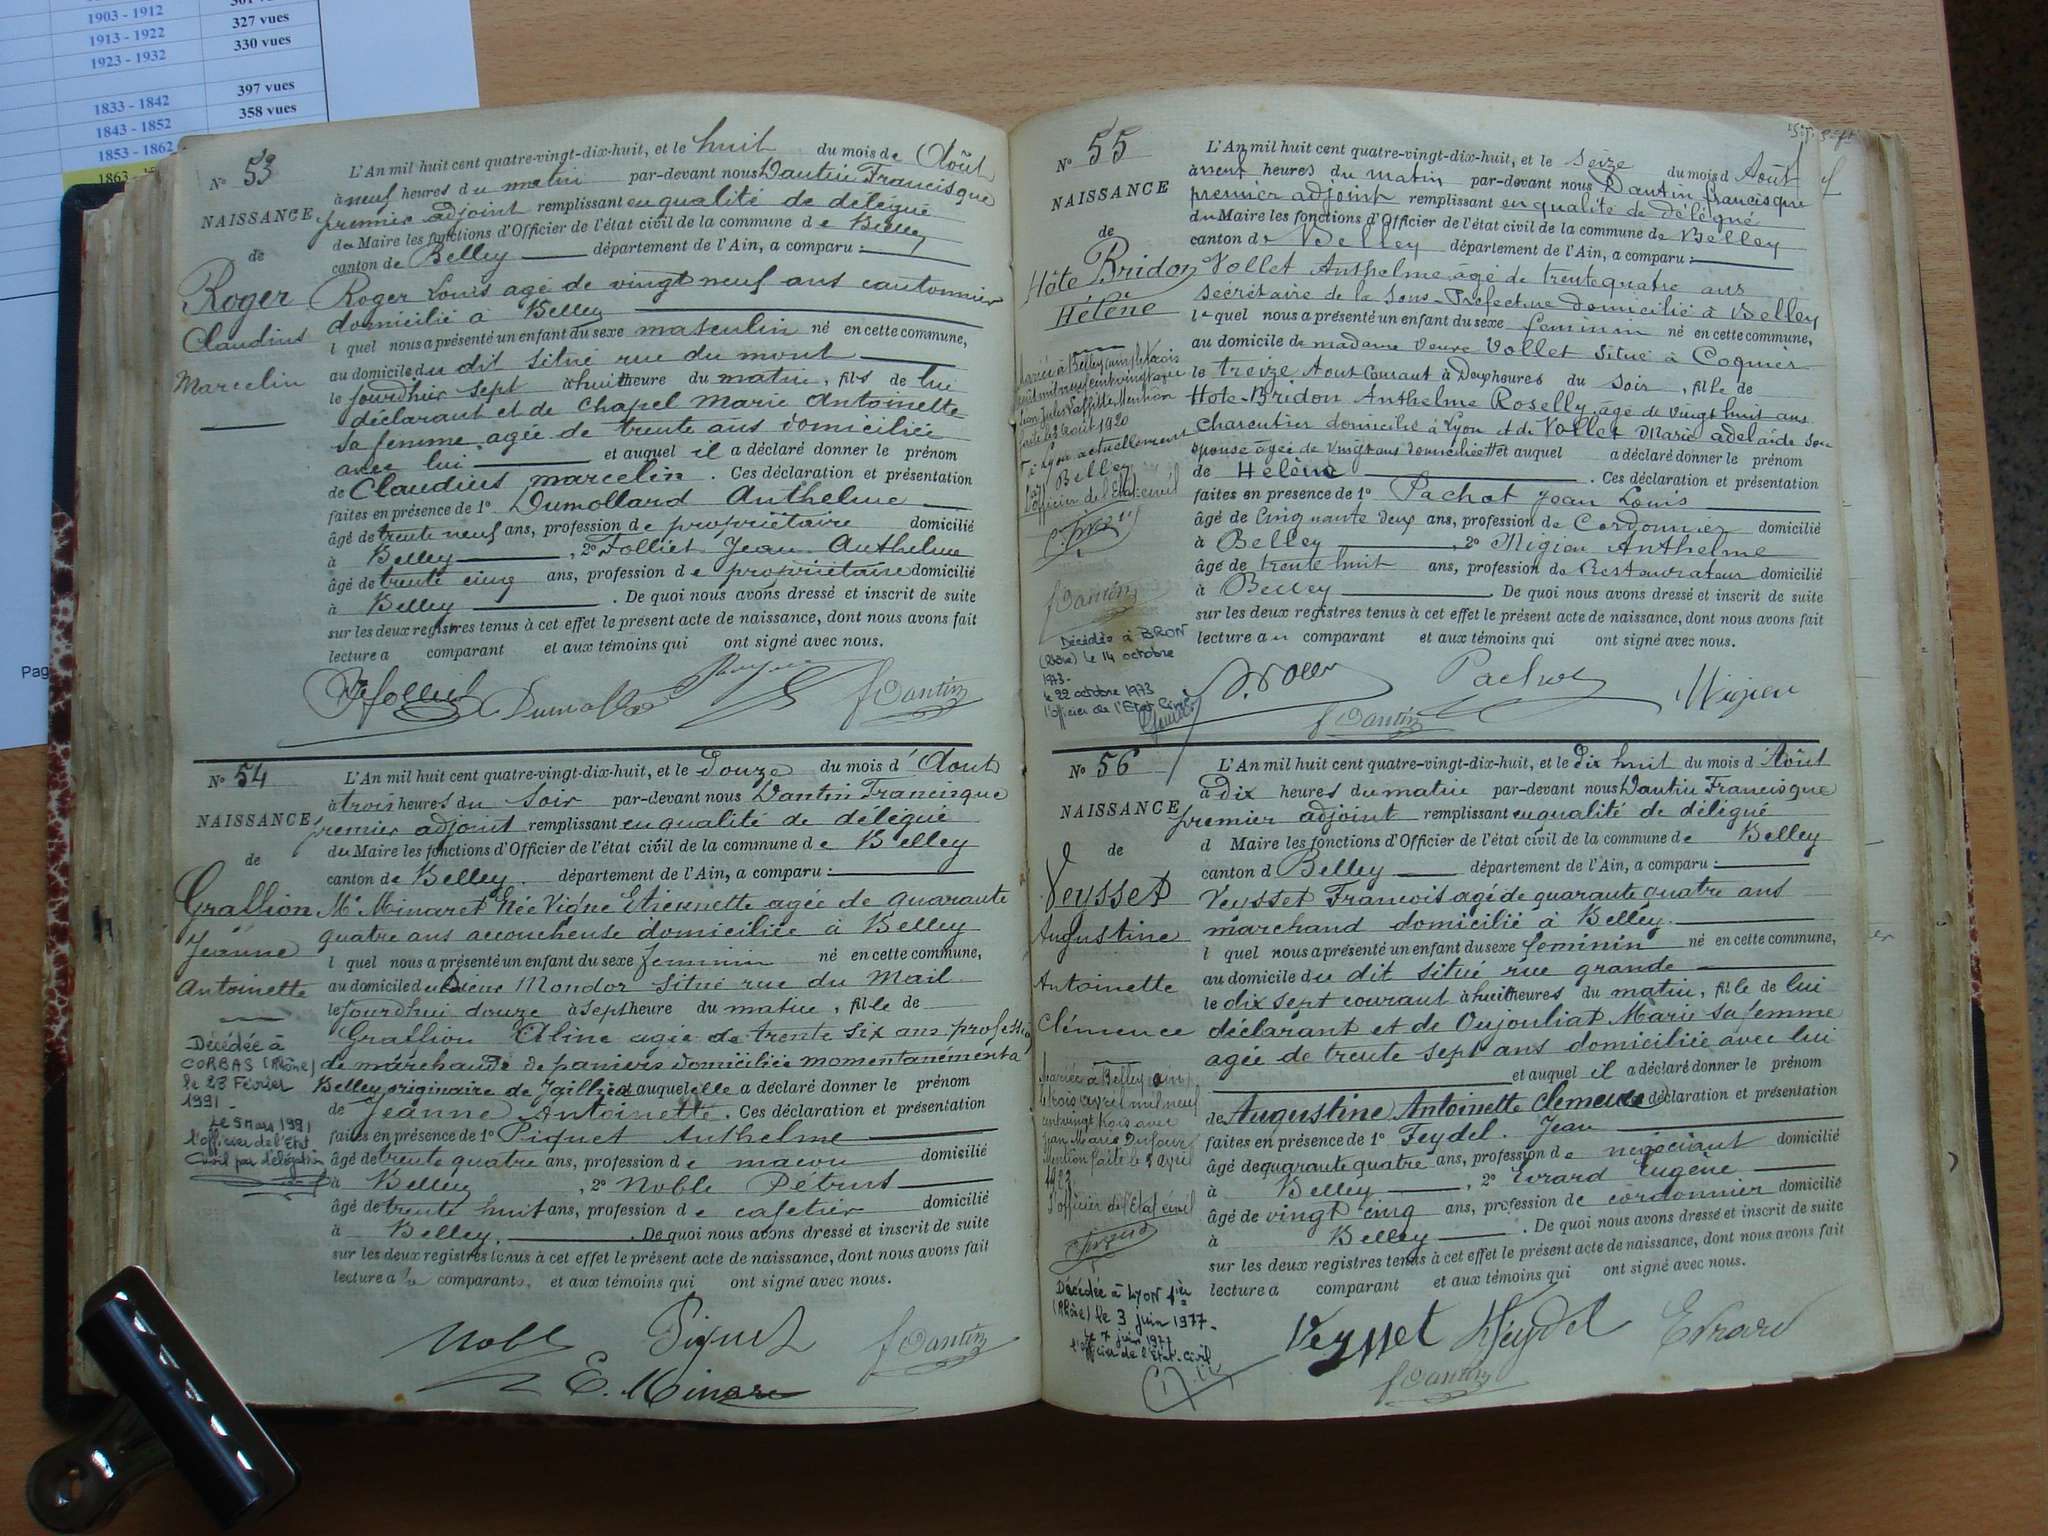 1903 - 1912
327 vues
1913 - 1922
330 vues
1923 - 1932
397 vues
1833 - 1842
358 vues
1843 - 1852
1853 - 1862
1863
Pag
N° 53
NAISSANCE
de
Roger
Claudius
Marcelin
L'An mil huit cent quatre-vingt-dix-huit, et le huit du mois de Août
à neuf heures du matin par-devant nous Dantin Francisque
premier adjoint remplissant en qualité de délégué
du Maire les fonctions d'Officier de l'état civil de la commune de Belley
canton de Belley département de l'Ain, a comparu :
Roger Louis agé de vingt neuf ans cantonnier
domicilié à Belley
l quel nous a présenté un enfant du sexe masculin né en cette commune,
au domicile du dit situé rue du mont
le jourd'hier sept à huit heure du matin, fils de lui
déclarant et de Chapel Marie Antoinette
sa femme agée de trente ans domiciliée
avec lui et auquel il a déclaré donner le prénom
de Claudius marcelin. Ces déclaration et présentation
faites en présence de 1° Dumollard Anthelme
âgé de trente neuf ans, profession de propriétaire domicilié
à Belley, 2° Folliet Jean Anthelme
âgé de trente cinq ans, profession de propriétaire domicilié
à Belley. De quoi nous avons dressé et inscrit de suite
sur les deux registres tenus à cet effet le présent acte de naissance, dont nous avons fait
lecture a comparant et aux témoins qui ont signé avec nous.
F Dantin
N° 54
NAISSANCE
de
Grassion
Jeanne
Antoinette
Décédée à
CORBAS (Rhône)
le 23 Février
1991
Le 5 mars 1991
l'officier de l'Etat
Civil par délégation
L'An mil huit cent quatre-vingt-dix-huit, et le Douze du mois d'Aout
à trois heures du Soir par-devant nous Dantin Francisque
premier adjoint remplissant en qualité de délégué
du Maire les fonctions d'Officier de l'état civil de la commune de Belley
canton de Belley. département de l'Ain, a comparu :
Me Minaret Née Vigne Etiennette agée de quarante
quatre ans accoucheuse domiciliée à Belley
l quel nous a présenté un enfant du sexe feminin né en cette commune,
au domicile du Sieur Mondor situé rue du Mail
le jourd'hui douze à Sept heure du matin, fille de
Grassion Céline agée de trente six ans profession
de marchande de paniers domiciliée momentanément à
Belley originaire de et auquel elle a déclaré donner le prénom
de Jeanne Antoinette. Ces déclaration et présentation
faites en présence de 1° Piquet Anthelme
âgé de trente quatre ans, profession de macon domicilié
à Belley, 2° Noble Pétrus
âgé de trente huit ans, profession de cafetier domicilié
à Belley. De quoi nous avons dressé et inscrit de suite
sur les deux registres tenus à cet effet le présent acte de naissance, dont nous avons fait
lecture a la comparante, et aux témoins qui ont signé avec nous.
Noble Piquet F Dantin
E. Minare
N° 55
NAISSANCE
de
Hôte Bridon
Hélène
F Dantin
Décédée à BRON
(Rhône) le 14 octobre
1973.
le 22 octobre 1973
l'officier de l'Etat Civil
L'An mil huit cent quatre-vingt-dix-huit, et le seize du mois d Août
à neuf heures du matin par-devant nous Dantin francisque
premier adjoint remplissant en qualité de délégué
du Maire les fonctions d'Officier de l'état civil de la commune de Belley
canton de Belley département de l'Ain, a comparu :
Vollet Anthelme agé de trente quatre ans
Secrétaire de la Sous-Préfecture domicilié à Belley
le quel nous a présenté un enfant du sexe feminin né en cette commune,
au domicile de madame Veuve Vollet situé à Coquier
le treize Aout Courant à Deux heures du Soir, fille de
Hote-Bridon Anthelme Roselly, agé de vingt huit ans
Charcutier domicilié à Lyon et de Vollet Marie adelaïde son
epouse agée de vingt ans domiciliée et auquel a déclaré donner le prénom
de Hélène. Ces déclaration et présentation
faites en présence de 1° Pachot Jean Louis
âgé de Cinquante deux ans, profession de Cordonnier domicilié
à Belley, 2° Migieu Anthelme
âgé de trente huit ans, profession de Restaurateur domicilié
à Belley. De quoi nous avons dressé et inscrit de suite
sur les deux registres tenus à cet effet le présent acte de naissance, dont nous avons fait
lecture au comparant et aux témoins qui ont signé avec nous.
Pachot Migieu
F Dantin
N° 56
NAISSANCE
de
Veysset
Augustine
Antoinette
Clémence
Mariée à Belley (Ain)
le trois avril mil neuf
cent vingt trois avec
Jean Marie Dufour
Mention faite le avril
1923
l'officier de l'Etat civil
Décédée à LYON 4ièe
(Rhône) le 3 juin 1977.
Le 7 juin 1977
l'officier de l'Etat-Civil
L'An mil huit cent quatre-vingt-dix-huit, et le dix huit du mois d'Août
à dix heures du matin par-devant nous Dantin Francisque
premier adjoint remplissant en qualité de délégué
d Maire les fonctions d'Officier de l'état civil de la commune de Belley
canton d Belley département de l'Ain, a comparu :
Veysset Francois agé de quarante quatre ans
marchand domicilié à Belley.
l quel nous a présenté un enfant du sexe feminin né en cette commune,
au domicile du dit situé rue grande
le dix sept courant à huit heures du matin, fille de lui
déclarant et de Oujouliat Marie sa femme
agée de trente sept ans domiciliée avec lui
et auquel il a déclaré donner le prénom
de Augustine Antoinette Clemence déclaration et présentation
faites en présence de 1° Feydel. Jean
âgé de quarante quatre ans, profession de negociant domicilié
à Belley, 2° Evrard Eugène
âgé de vingt cinq ans, profession de cordonnier domicilié
à Belley. De quoi nous avons dressé et inscrit de suite
sur les deux registres tenus à cet effet le présent acte de naissance, dont nous avons fait
lecture a comparant et aux témoins qui ont signé avec nous.
Veysset Feydel Evrard
F Dantin